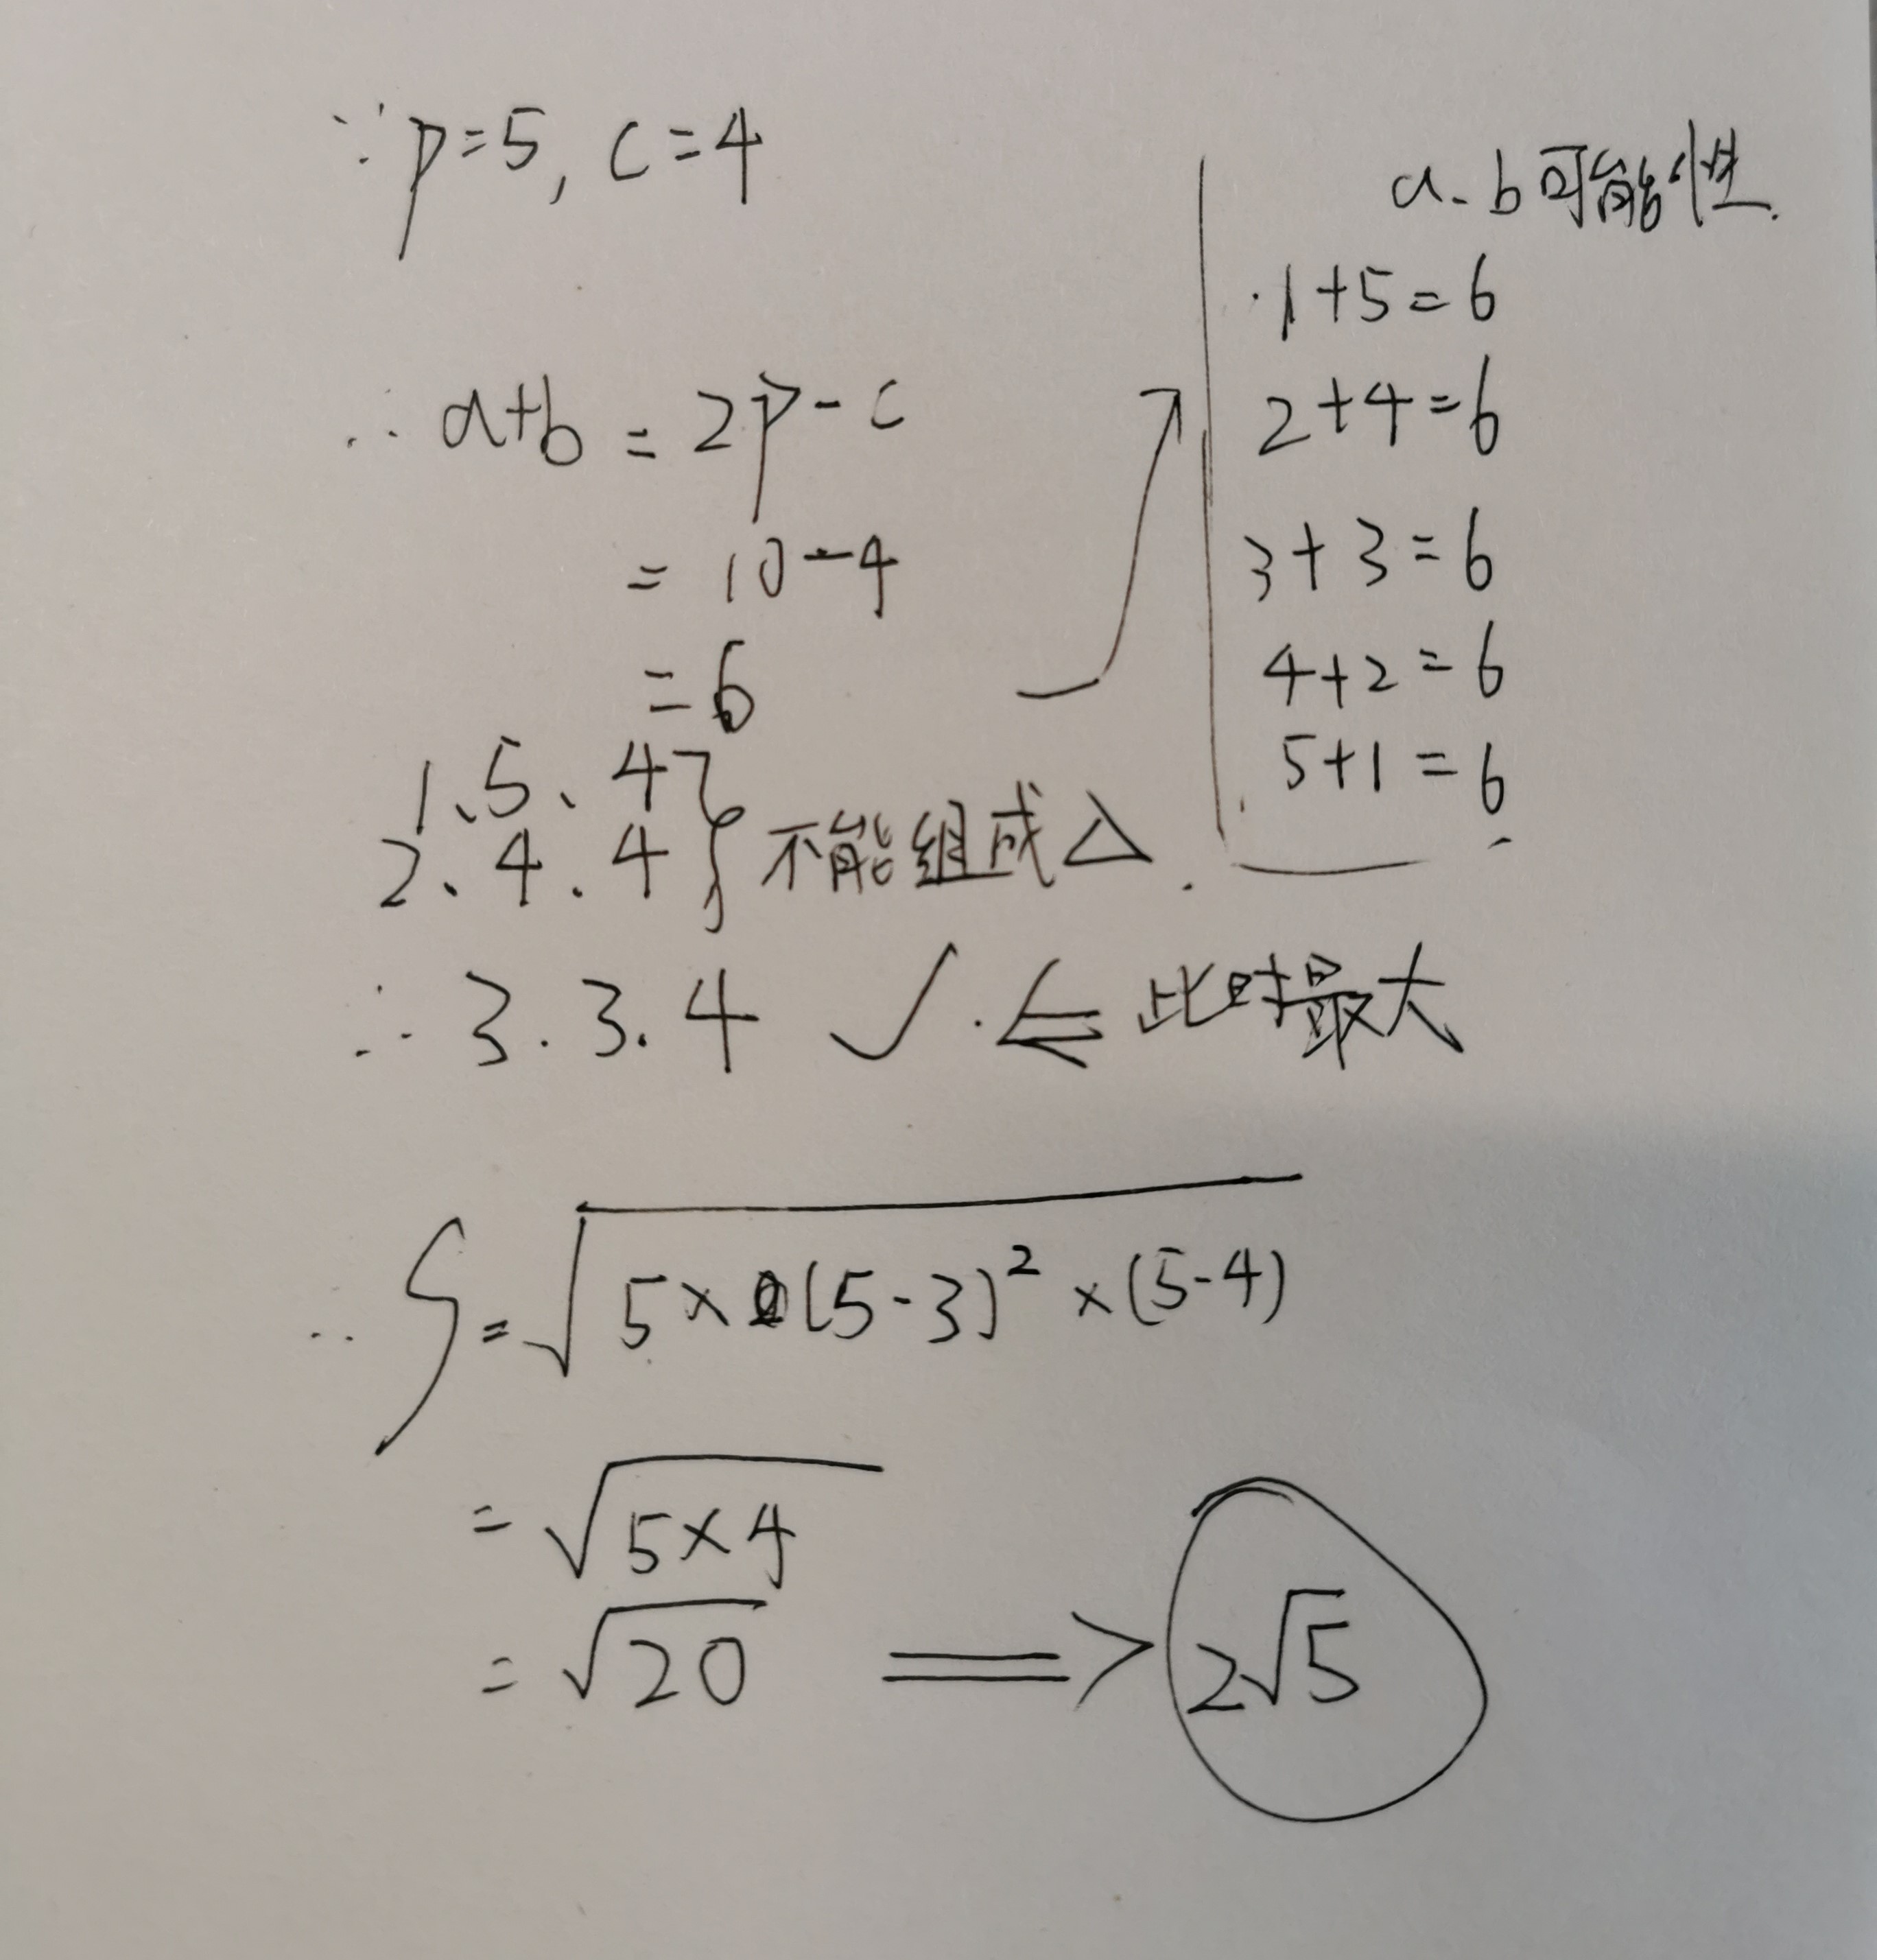 ∵ p=5, c=4
∴ a+b = 2p-c
= 10-4
= 6
a、b可能性.
1+5=6
2+4=6
3+3=6
4+2=6
5+1=6
1、5、4
2、4、4 } 不能组成△.
∴ 3.3.4 ✓. ⇐ 此时最大
∴ S=√5×(5-3)²×(5-4)
=√5×4
=√20 ⟹ 2√5